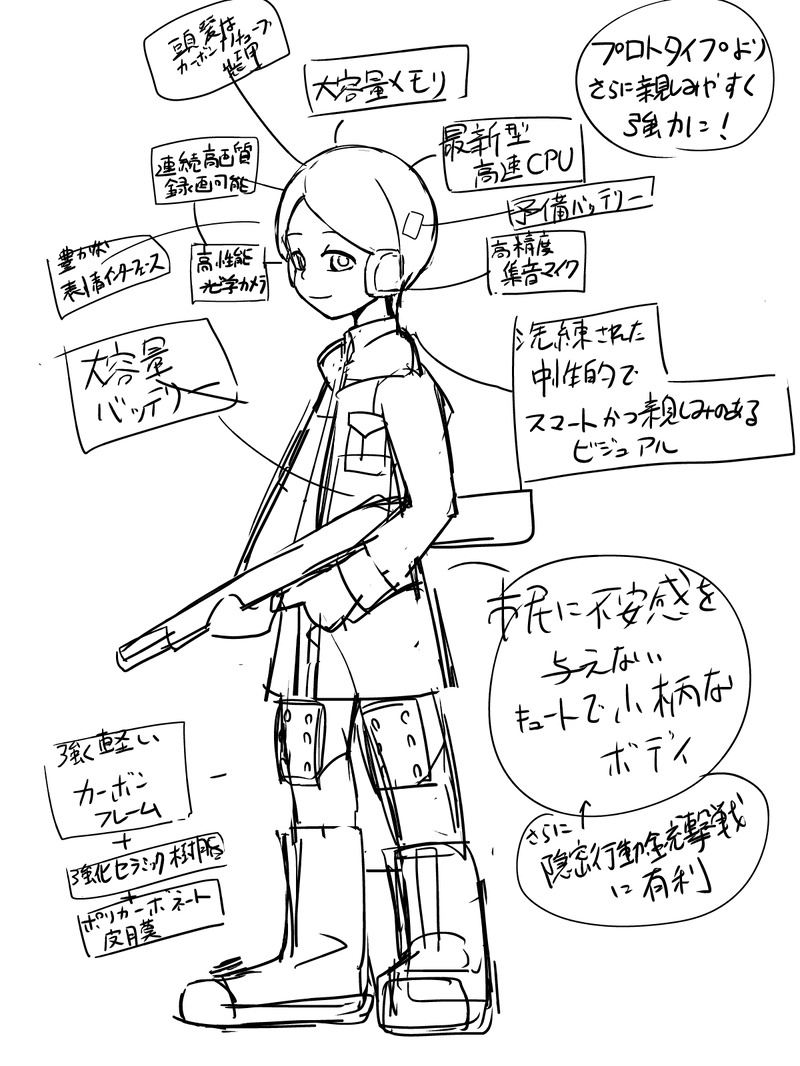 頭髪は
カーボンチューブ
処理
大容量メモリ
プロトタイプより
さらに親しみやすく
強力に!
連続高画質
録画可能
最新型
高速CPU
予備バッテリー
豊かな
表情インターフェース
高性能
光学カメラ
高精度
集音マイク
大容量
バッテリー
洗練された
中性的で
スマートかつ親しみのある
ビジュアル
市民に不安感を
与えない
キュートで小柄な
ボディ
強く軽い
カーボン
フレーム
+
強化セラミック樹脂
+
ポリカーボネート
皮膜
さらに
隠密行動銃撃戦
に有利